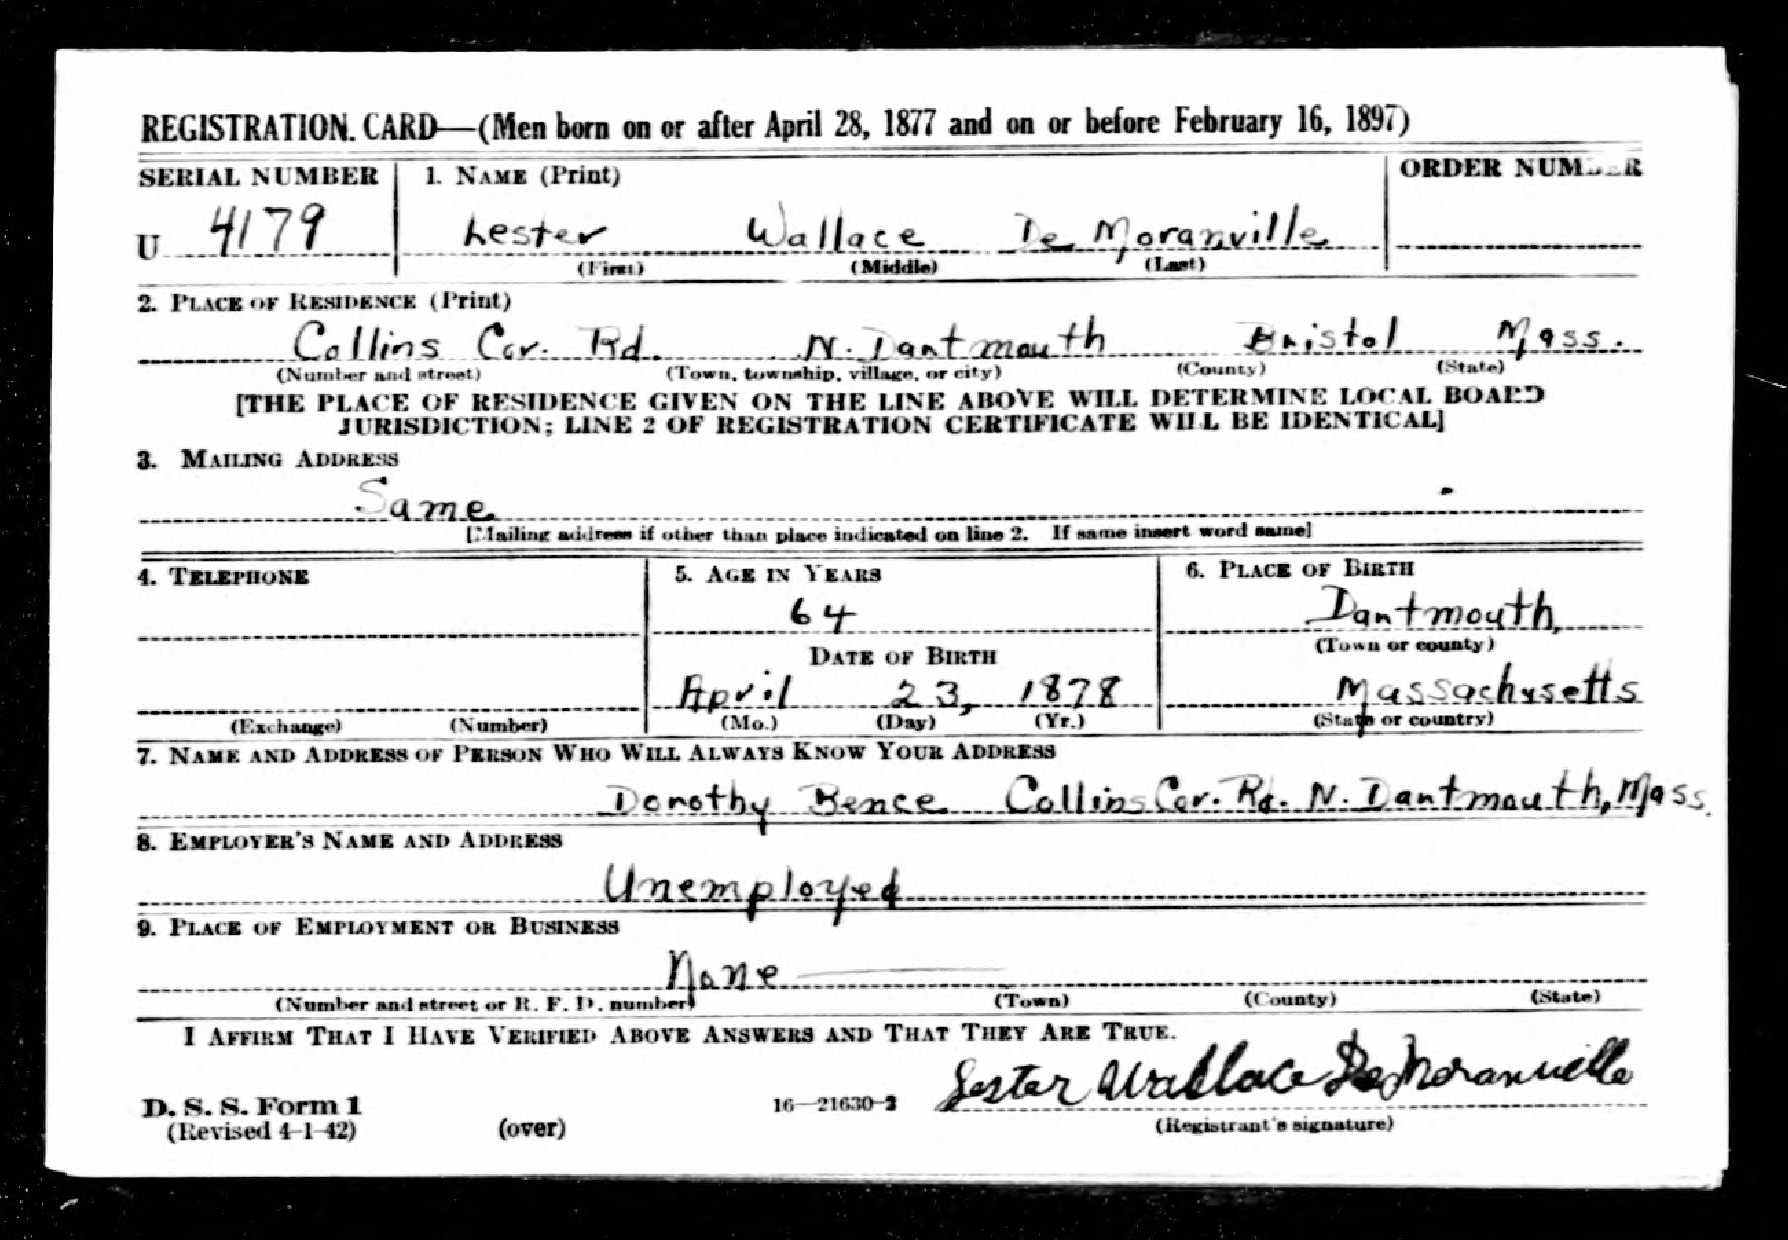 REGISTRATION CARD—(Men born on or after April 28, 1877 and on or before February 16, 1897)
SERIAL NUMBER 1. NAME (Print) ORDER NUMBER
U 4179 Lester Wallace De Moranville
(First) (Middle) (Last)
2. PLACE OF RESIDENCE (Print)
Collins Cor. Rd. N. Dartmouth Bristol Mass.
(Number and street) (Town, township, village, or city) (County) (State)
[THE PLACE OF RESIDENCE GIVEN ON THE LINE ABOVE WILL DETERMINE LOCAL BOARD
JURISDICTION; LINE 2 OF REGISTRATION CERTIFICATE WILL BE IDENTICAL]
3. MAILING ADDRESS
Same
[Mailing address if other than place indicated on line 2. If same insert word same]
4. TELEPHONE 5. AGE IN YEARS 6. PLACE OF BIRTH
64 Dartmouth,
DATE OF BIRTH (Town or county)
April 23, 1878 Massachusetts
(Exchange) (Number) (Mo.) (Day) (Yr.) (State or country)
7. NAME AND ADDRESS OF PERSON WHO WILL ALWAYS KNOW YOUR ADDRESS
Dorothy Bence Collins Cor. Rd. N. Dartmouth, Mass.
8. EMPLOYER'S NAME AND ADDRESS
Unemployed
9. PLACE OF EMPLOYMENT OR BUSINESS
None
(Number and street or R. F. D. number) (Town) (County) (State)
I AFFIRM THAT I HAVE VERIFIED ABOVE ANSWERS AND THAT THEY ARE TRUE.
Lester Wallace De Moranville
D. S. S. Form 1 16—21630-2
(Revised 4-1-42) (over) (Registrant's signature)